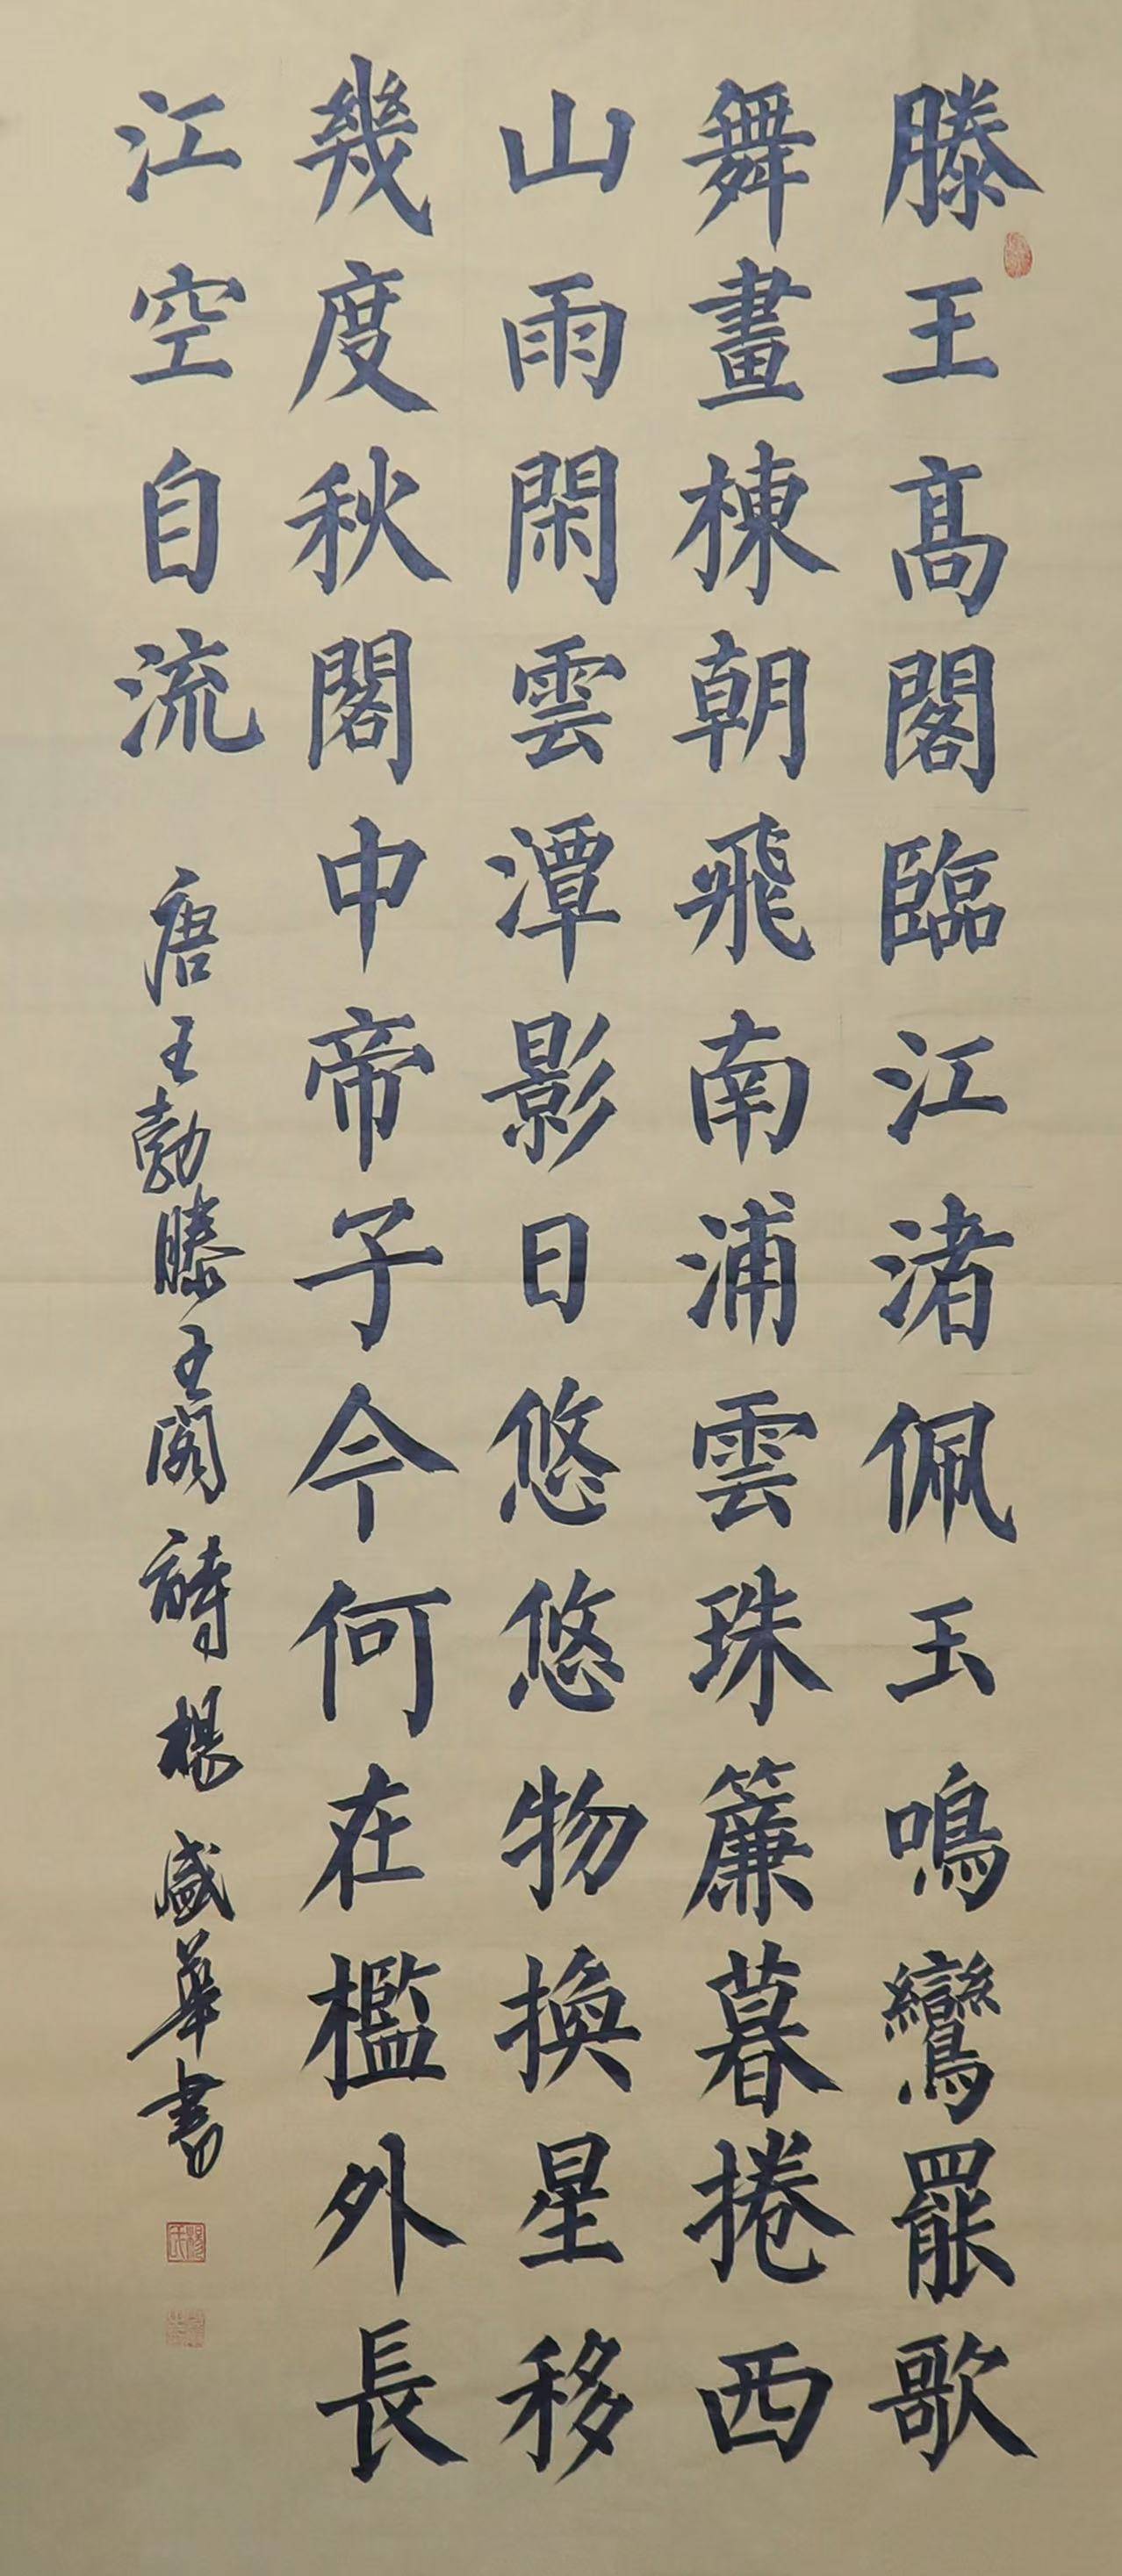 滕王高閣臨江渚佩玉鳴鸞罷歌
舞畫棟朝飛南浦雲珠簾暮捲西
山雨閑雲潭影日悠悠物換星移
幾度秋閣中帝子今何在檻外長
江空自流
唐王勃滕王阁詩楊盛華書